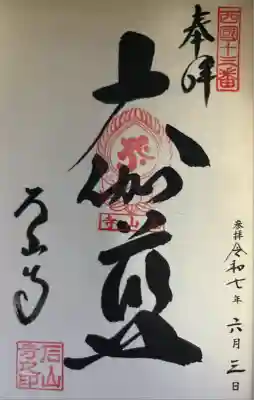 西國十三番
奉拝
大伽藍
石山寺
参拝 令和七年 六月 三日
石山寺之印